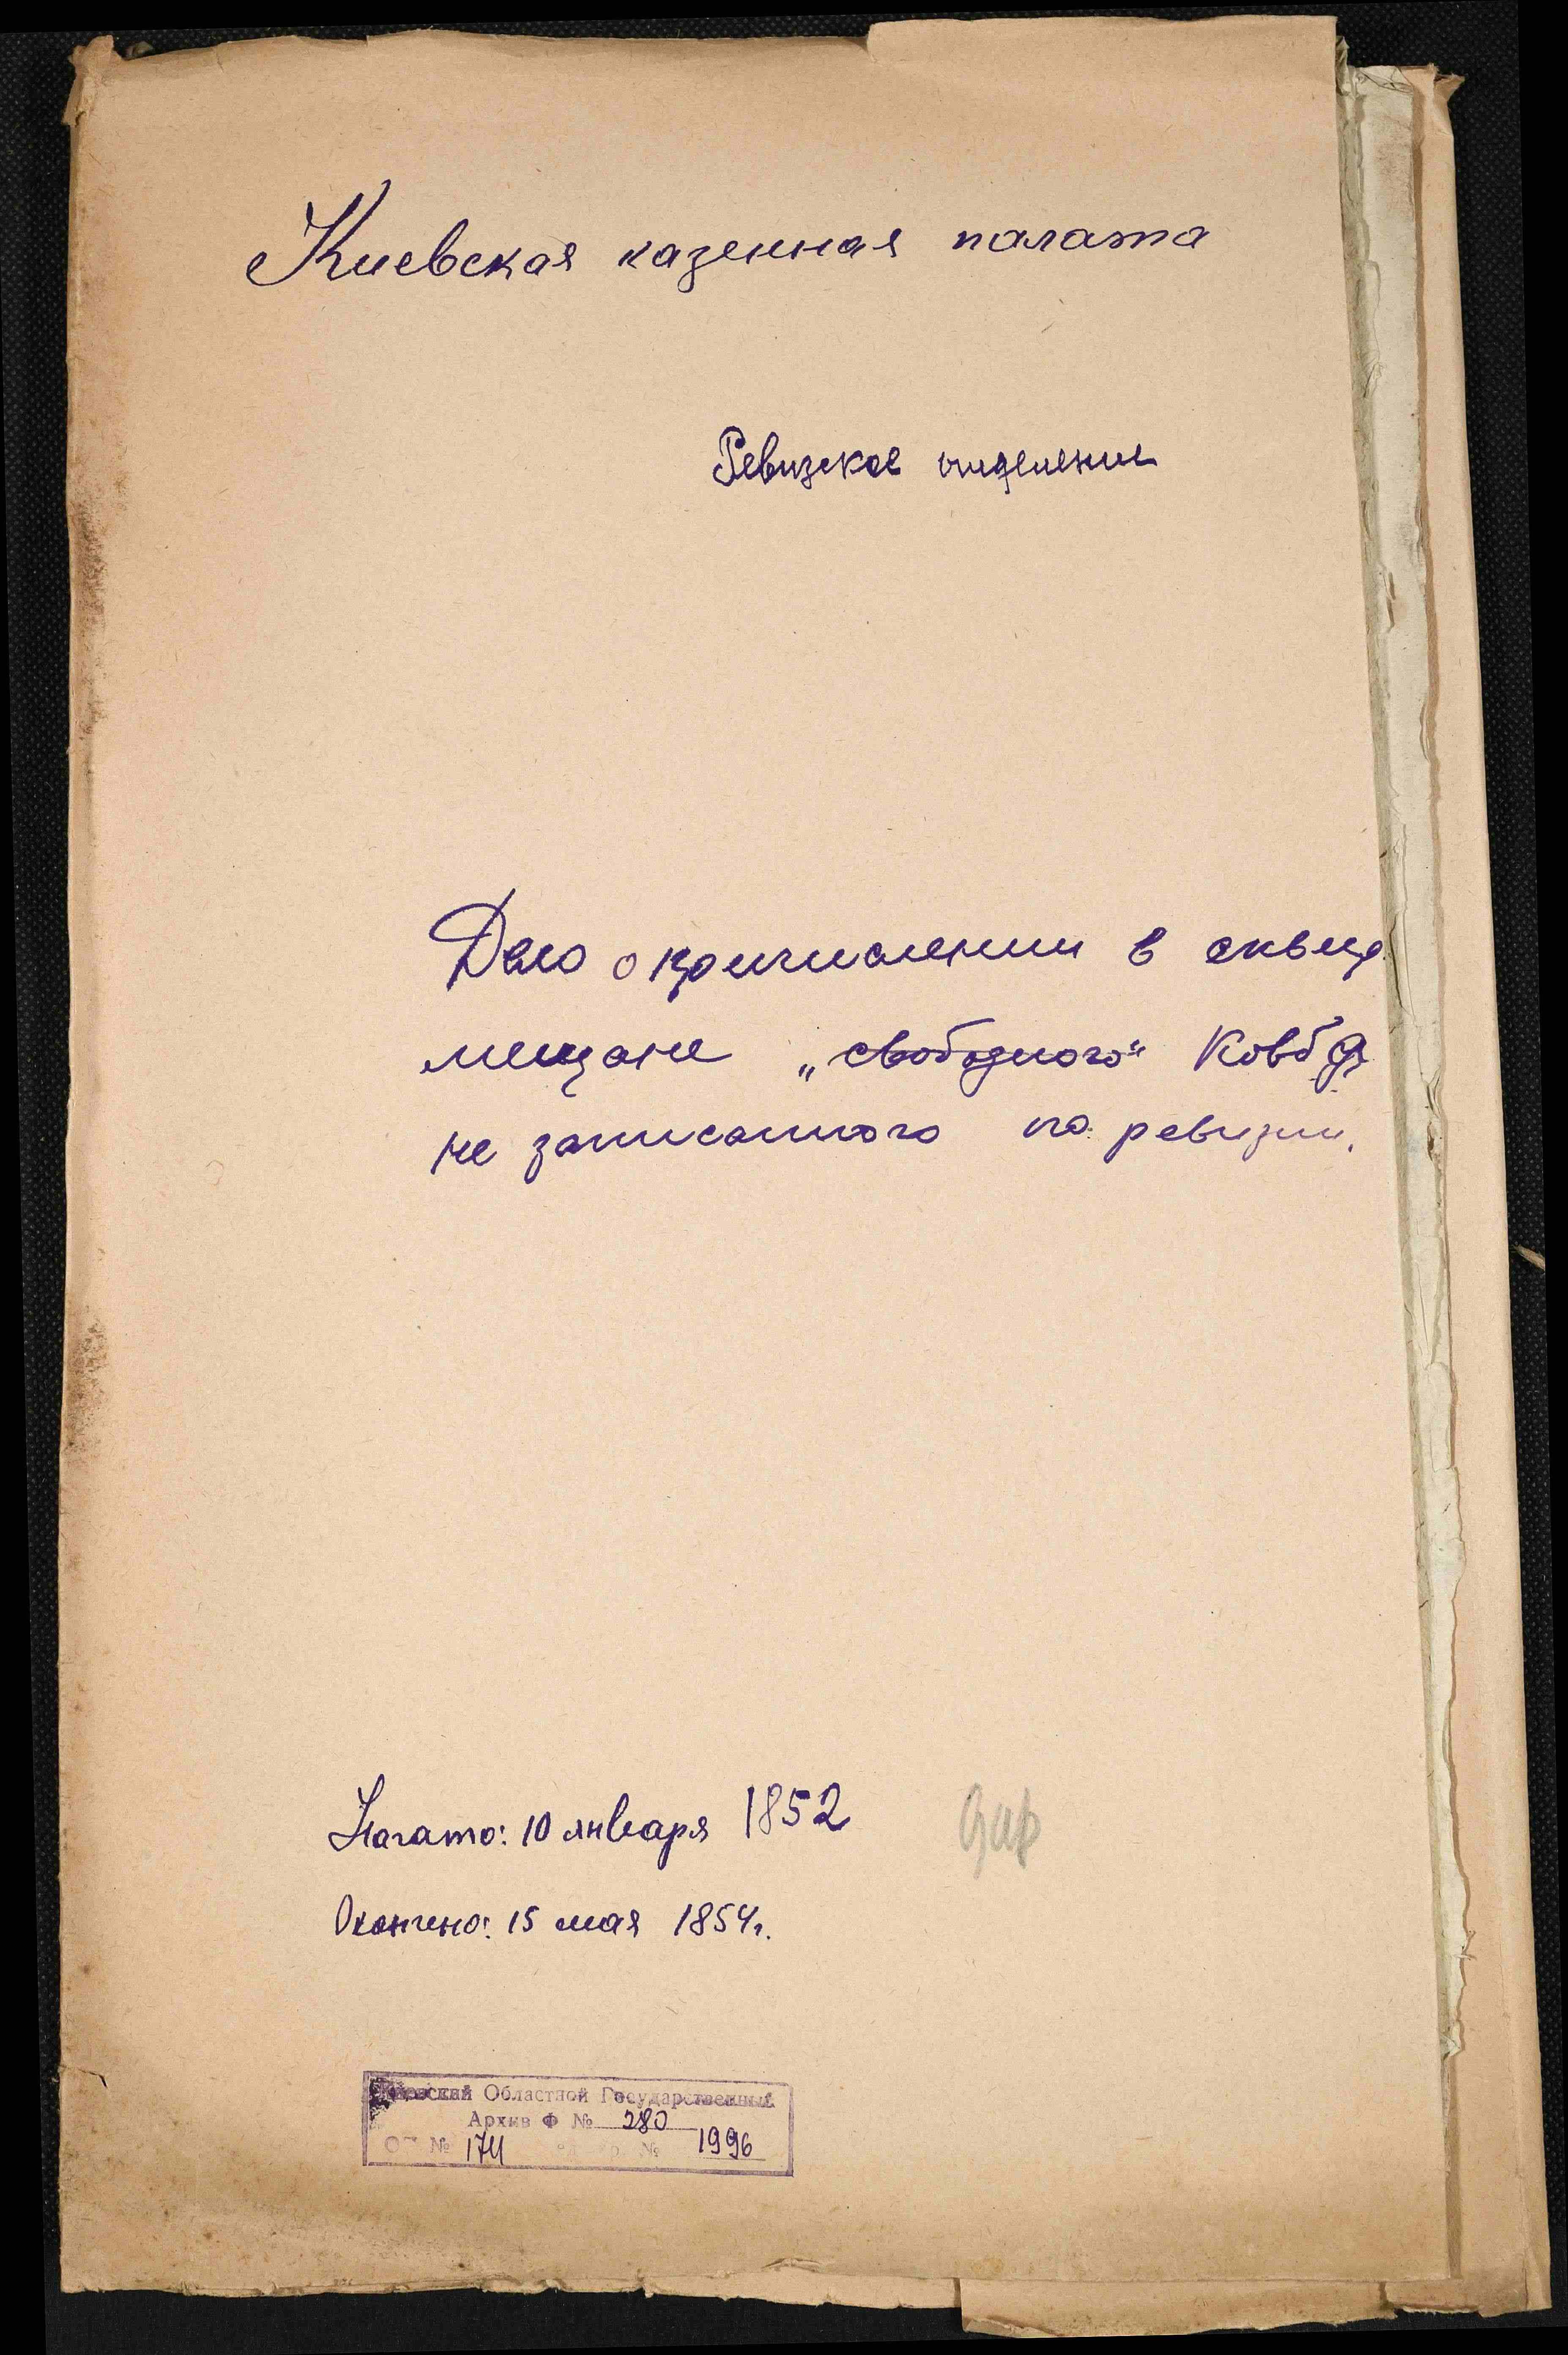 Киевская казенная палата
Ревизское отделение
Дело о причислении в сквир
мещане „свободного“ Ковбя
не записанного по ревизии.
Начато: 10 января 1852
Окончено: 15 мая 1854г.
Киевский Областной Государственный
Архив Ф № 280
ОП № 174 № 1996